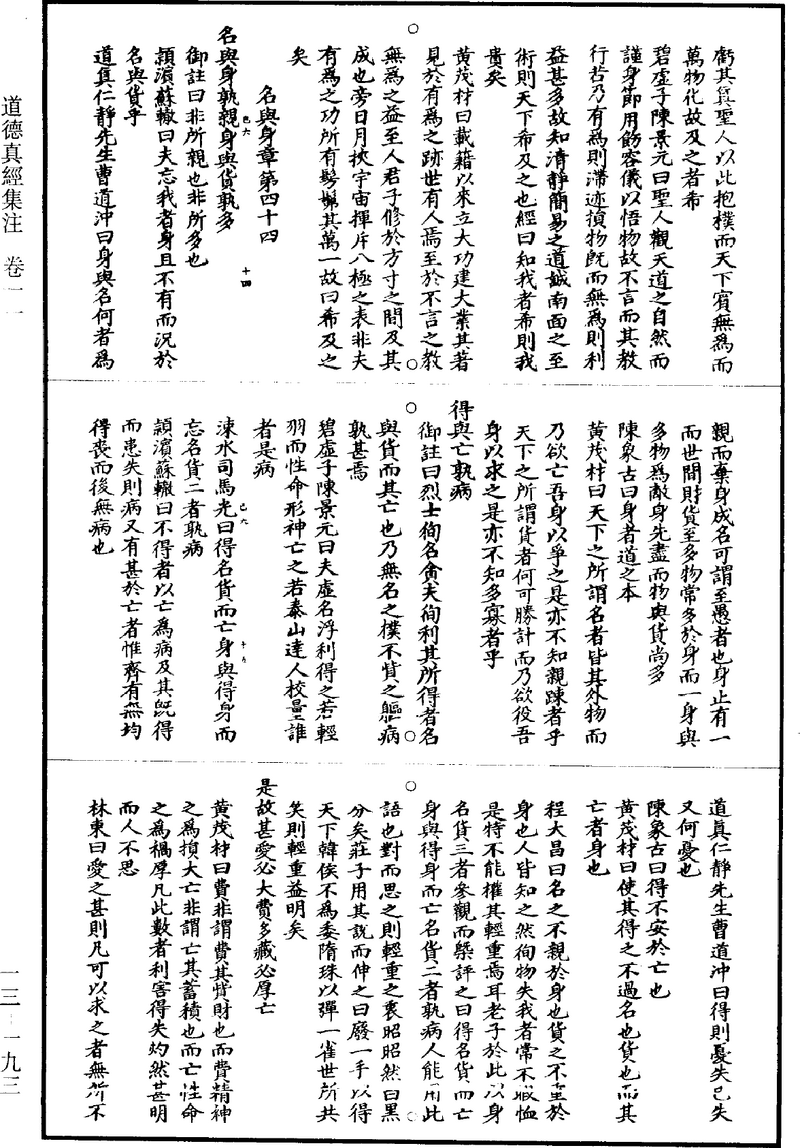 道德真經集注　卷一一
一三－一九三
虧其眞聖人以此抱樸而天下賓無爲而
萬物化故及之者希
碧虛子陳景元曰聖人觀天道之自然而
謹身節用飭容儀以悟物故不言而其教
行苦乃有爲則滯迹損物旣而無爲則利
益甚多故知清靜簡易之道誠南面之至
術則天下希及之也經曰知我者希則我
貴矣
黃茂材曰載籍以來立大功建大業其著
見於有爲之跡世有人焉至於不言之教
無爲之益至人君子修於方寸之間及其
成也旁日月挾宇宙揮斥八極之表非夫
有爲之功所有髣髴其萬一故曰希及之
矣
名與身章第四十四
名與身孰親身與貨孰多
御註曰非所親也非所多也
潁濱蘇轍曰夫忘我者身且不有而況於
名與貨乎
道眞仁靜先生曹道沖曰身與名何者爲
親而棄身成名可謂至愚者也身止有一
而世間財貨至多物常多於身而一身與
多物爲敵身先盡而物與貨尚多
陳象古曰身者道之本
黃茂材曰天下之所謂名者皆其外物而
乃欲亡吾身以爭之是亦不知親踈者乎
天下之所謂貨者何可勝計而乃欲役吾
身以求之是亦不知多寡者乎
得與亡孰病
御註曰烈士徇名貪夫徇利其所得者名
與貨而其亡也乃無名之樸不貲之軀病
孰甚焉
碧虛子陳景元曰夫虛名浮利得之若輕
羽而性命形神亡之若泰山達人校量誰
者是病
涑水司馬光曰得名貨而亡身與得身而
忘名貨二者孰病
潁濱蘇轍曰不得者以亡爲病及其旣得
而患失則病又有甚於亡者惟齊有無均
得喪而後無病也
道眞仁靜先生曹道沖曰得則憂失已失
又何憂也
陳象古曰得不安於亡也
黃茂材曰使其得之不過名也貨也而其
亡者身也
程大昌曰名之不親於身也貨之不重於
身也人皆知之然徇物失我者常不暇恤
是特不能權其輕重焉耳老子於此以身
名貨三者參觀而槩評之曰得名貨而亡
身與得身而亡名貨二者孰病人能用此
語也對而思之則輕重之衷昭昭然曰黑
分矣莊子用其說而伸之曰廢一手以得
天下韓侯不爲委隋珠以彈一雀世所共
矣則輕重益明矣
是故甚愛必大費多藏必厚亡
黃茂材曰費非謂費其貲財也而費精神
之爲損大亡非謂亡其蓄積也而亡性命
之爲禍厚凡此數者利害得失灼然甚明
而人不思
林東曰愛之甚則凡可以求之者無所不